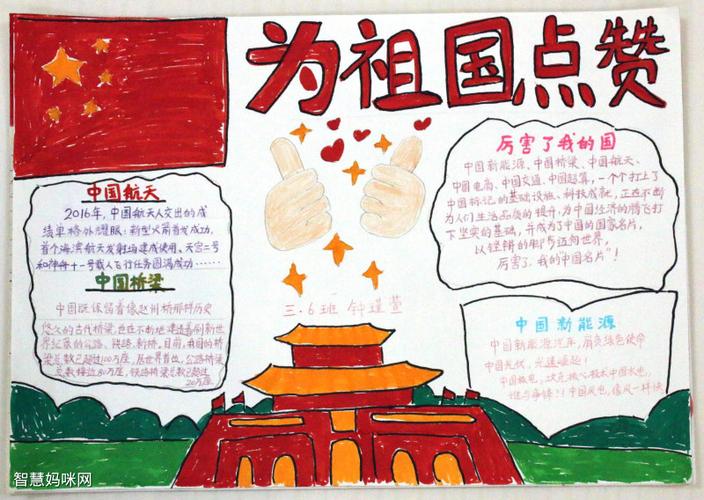 为祖国点赞
中国航天
2016年，中国航天人交出的成
绩单格外耀眼：新型火箭首发成功，
首个海滨航天发射场建成使用、天宫二号
和神舟十一号载人飞行任务圆满成功……
中国桥梁
中国既保留着像赵州桥那样历史
悠久的古代桥梁，也在不断地建造着刷新世
界纪录的公路、铁路新桥。目前，我国的桥
梁总数已超过100万座，居世界首位，公路桥梁
总数接近80万座，铁路桥梁总数已超过
20万座。
三.6班 钟瑾萱
厉害了我的国
中国新能源、中国桥梁、中国航天、
中国电商、中国交通、中国超算，一个个打上了
中国标记的基础设施、科技成就，正在不断
为人们生活品质的提升，为中国经济的腾飞打
下坚实的基础，并成为了中国的国家名片，
以铿锵的脚步迈向世界，
厉害了，我的“中国名片”！
中国新能源
中国新能源汽车，肩负绿色使命
中国光伏，光速崛起！
中国核电，攻克核心技术中国水电，
谁与争锋？！中国风电，像风一样快
智慧妈咪网